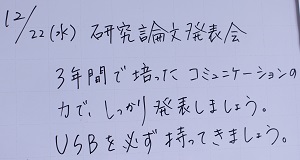 12/22(水) 研究論文発表会
3年間で培ったコミュニケーションの
力で、しっかり発表しましょう。
USBを必ず持ってきましょう。